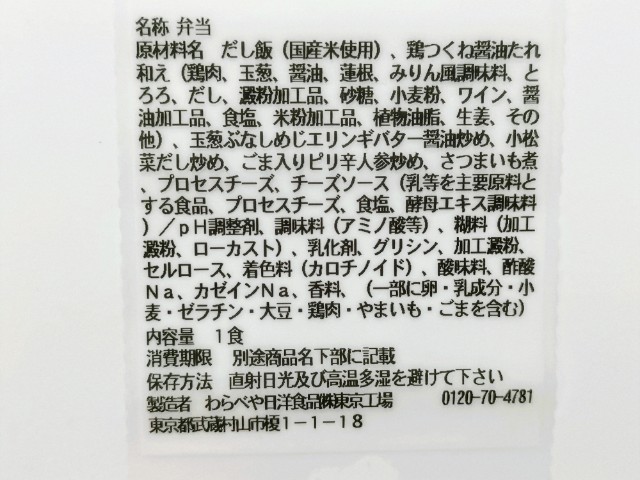 名称 弁当
原材料名　だし飯（国産米使用）、鶏つくね醤油たれ
和え（鶏肉、玉葱、醤油、蓮根、みりん風調味料、と
ろろ、だし、澱粉加工品、砂糖、小麦粉、ワイン、醤
油加工品、食塩、米粉加工品、植物油脂、生姜、その
他）、玉葱ぶなしめじエリンギバター醤油炒め、小松
菜だし炒め、ごま入りピリ辛人参炒め、さつまいも煮
、プロセスチーズ、チーズソース（乳等を主要原料と
する食品、プロセスチーズ、食塩、酵母エキス調味料
）／ｐＨ調整剤、調味料（アミノ酸等）、糊料（加工
澱粉、ローカスト）、乳化剤、グリシン、加工澱粉、
セルロース、着色料（カロチノイド）、酸味料、酢酸
Ｎａ、カゼインＮａ、香料、（一部に卵・乳成分・小
麦・ゼラチン・大豆・鶏肉・やまいも・ごまを含む）
内容量　１食
消費期限　別途商品名下部に記載
保存方法　直射日光及び高温多湿を避けて下さい
製造者　わらべや日洋食品㈱東京工場　0120-70-4781
東京都武蔵村山市榎１－１－１８